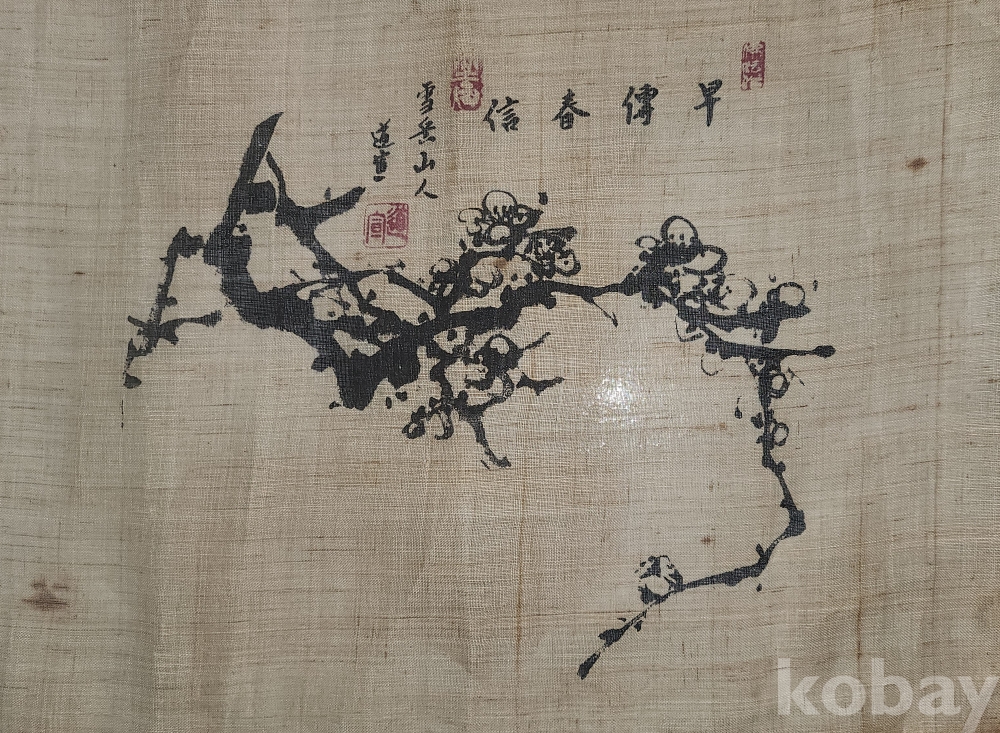 早傳春信
雪岳山人
道宣
道宣
kobay